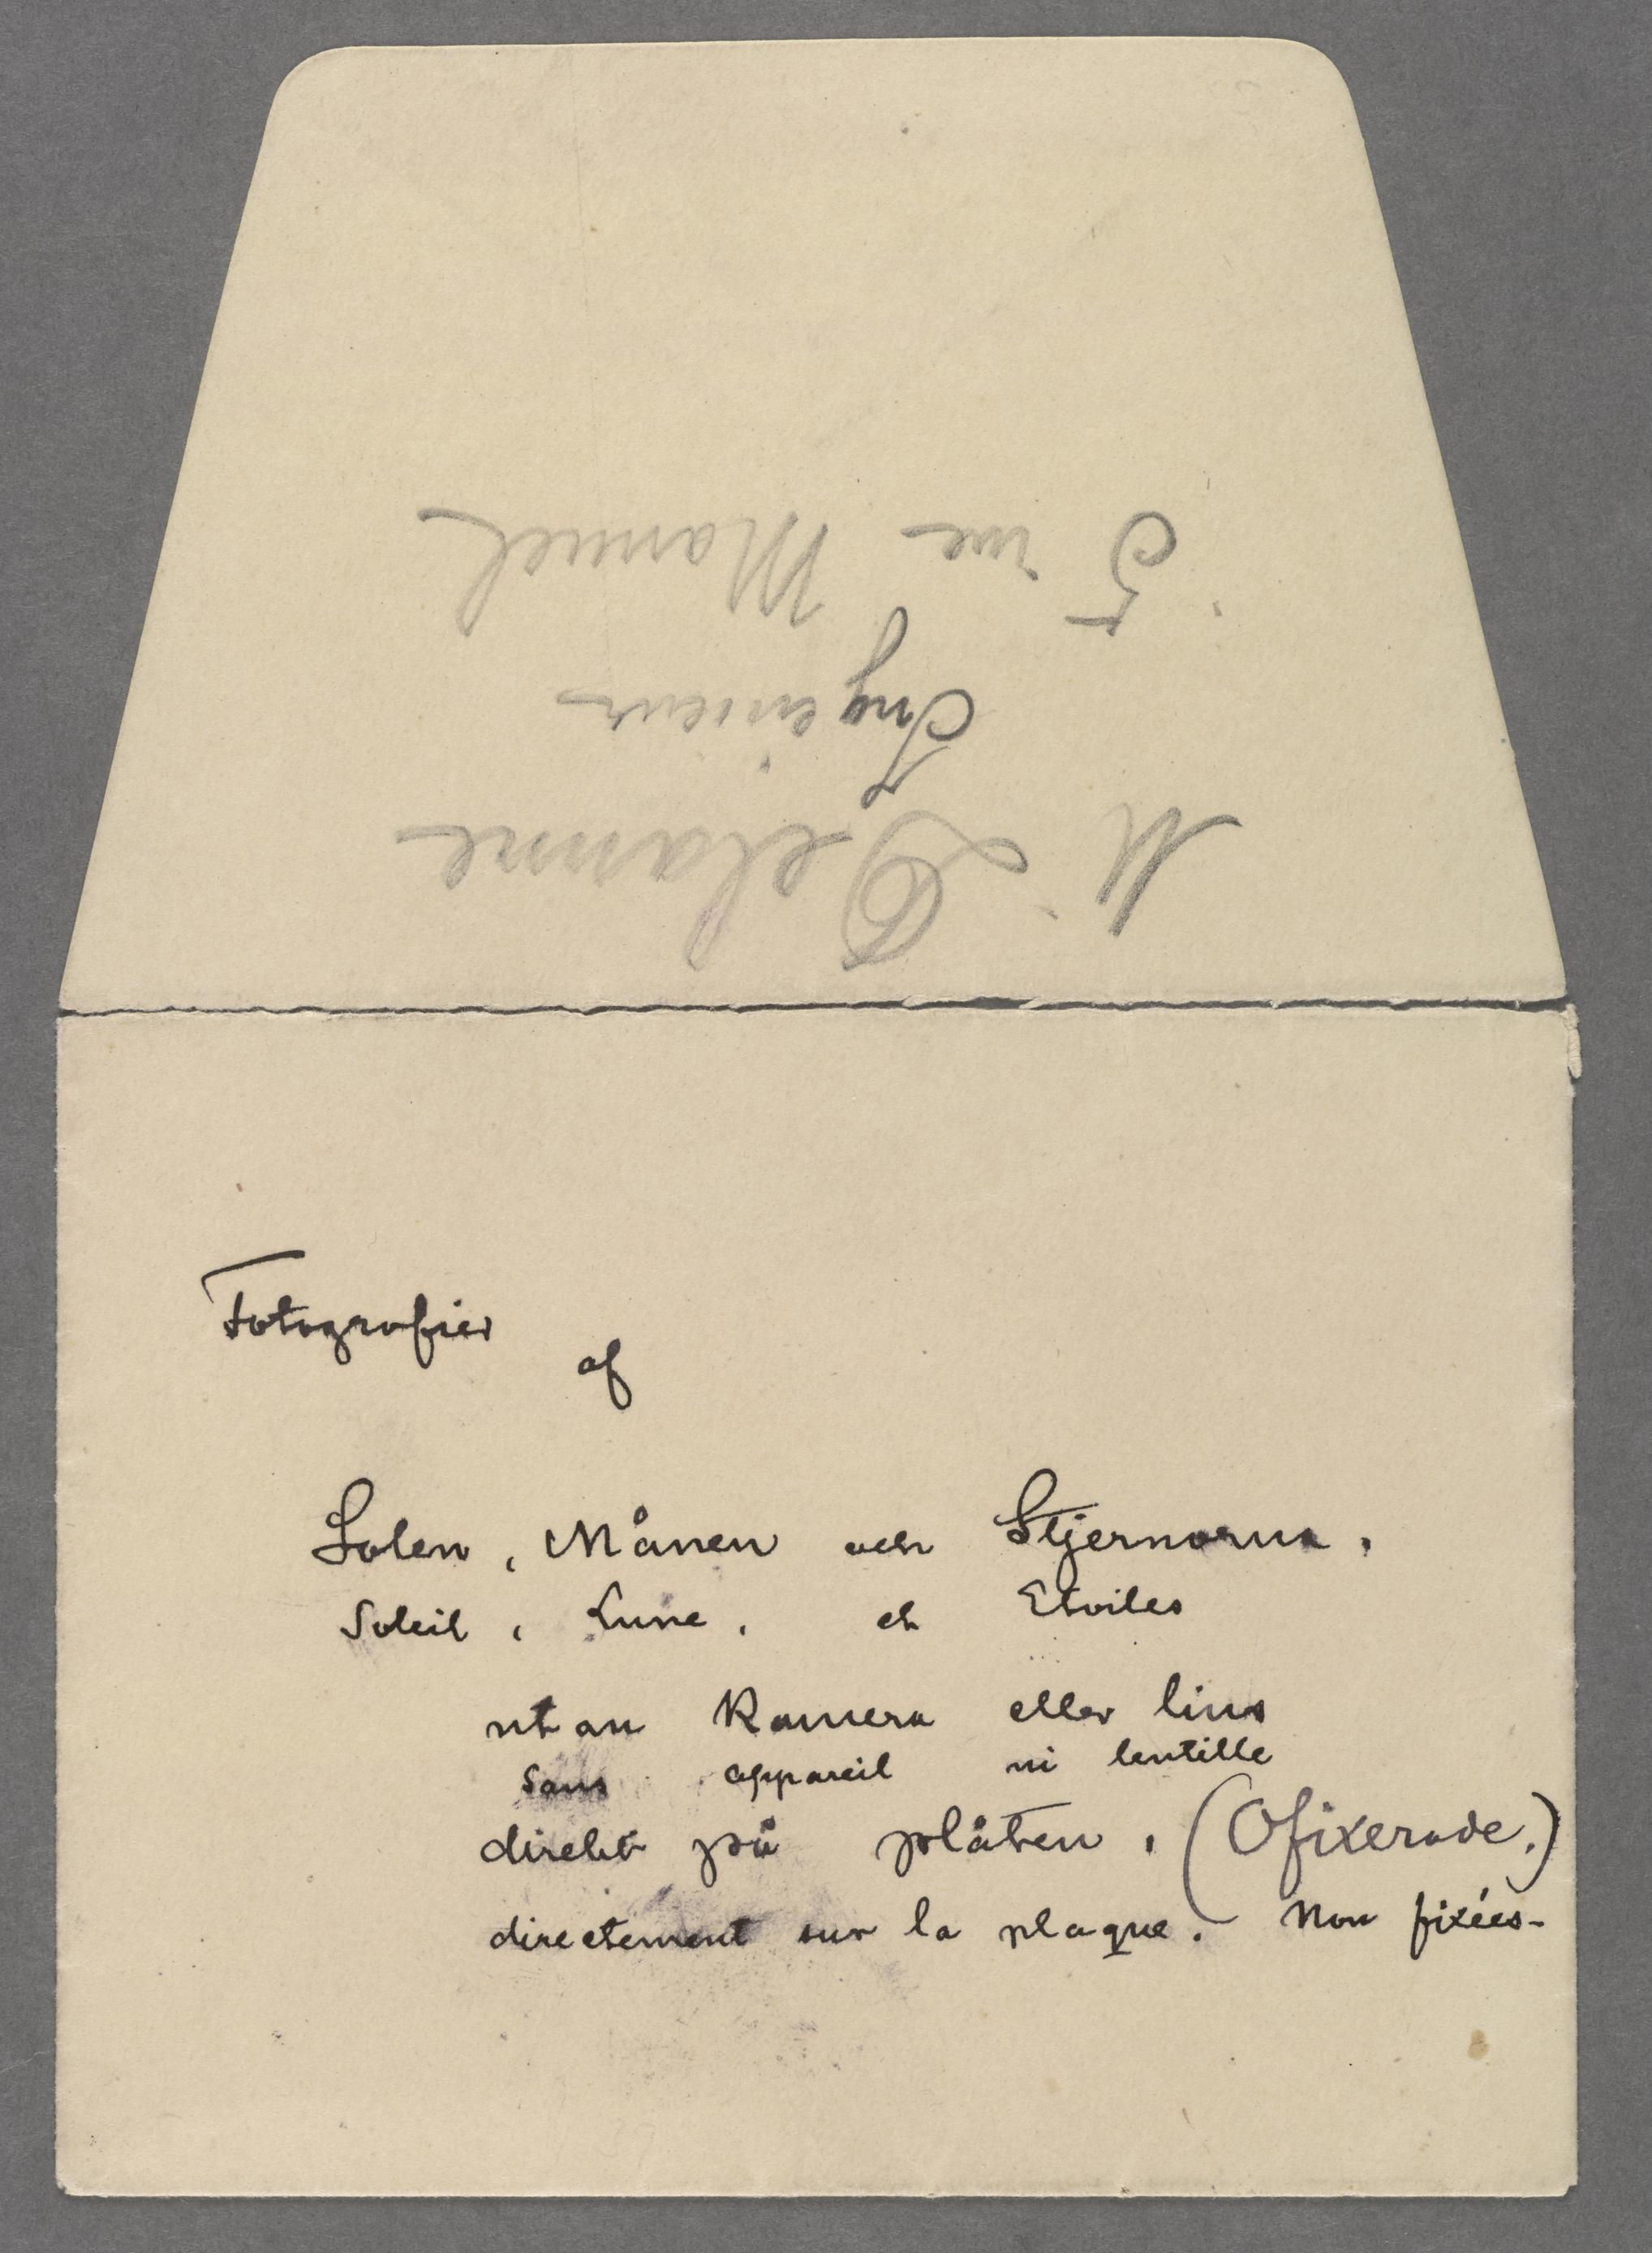 M. Delanne
Ingénieur
5 rue Manuel
Fotografier
af
Solen, Månen och Stjernorna.
Soleil, Lune, et Etoiles
utan Kamera eller lins
sans appareil ni lentille
direkt på plåten. (Ofixerade.)
directement sur la plaque. Non fixées-